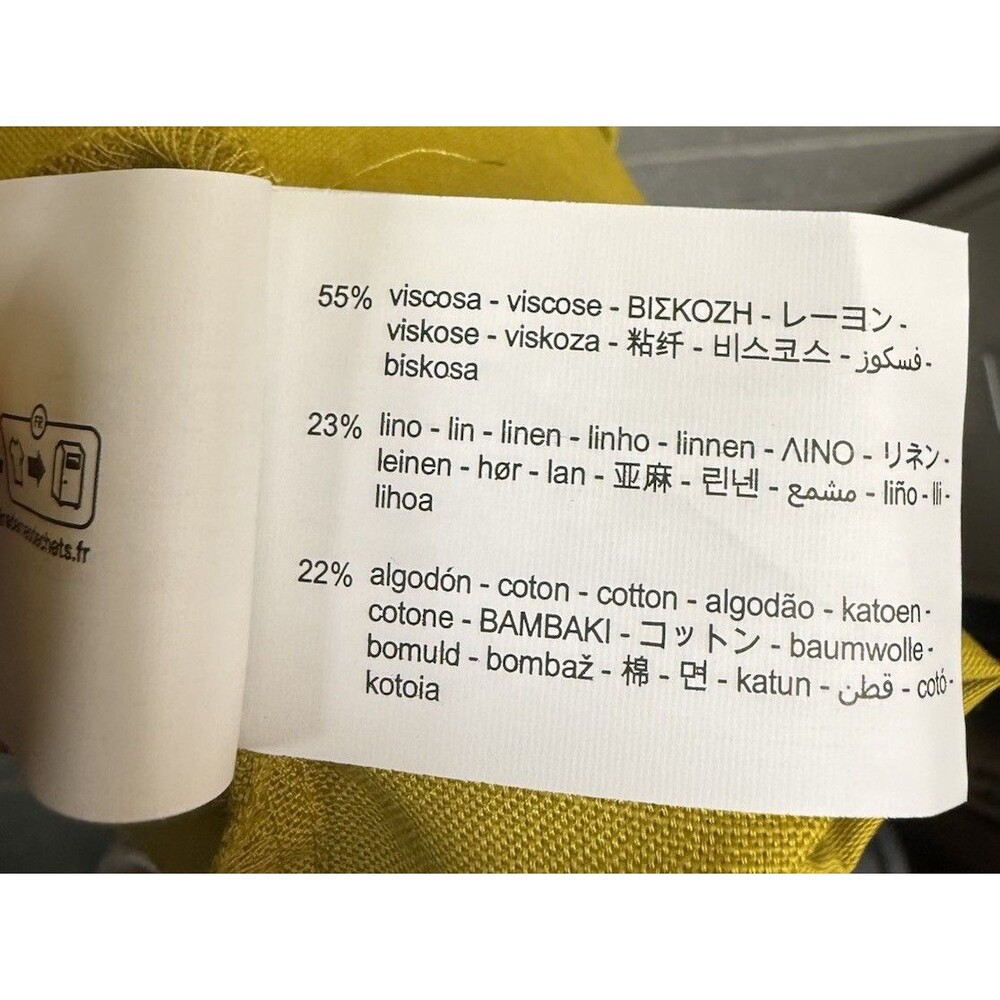 55% viscosa - viscose - ΒΙΣΚΟΖΗ - レーヨン -
viskose - viskoza - 粘纤 - 비스코스 - فسكوز -
biskosa
23% lino - lin - linen - linho - linnen - ΛΙΝΟ - リネン -
leinen - hør - lan - 亚麻 - 린넨 - مشمع - liño - lli -
lihoa
22% algodón - coton - cotton - algodão - katoen -
cotone - ΒΑΜΒΑΚΙ - コットン - baumwolle -
bomuld - bombaž - 棉 - 면 - katun - قطن - cotó -
kotoia
FR